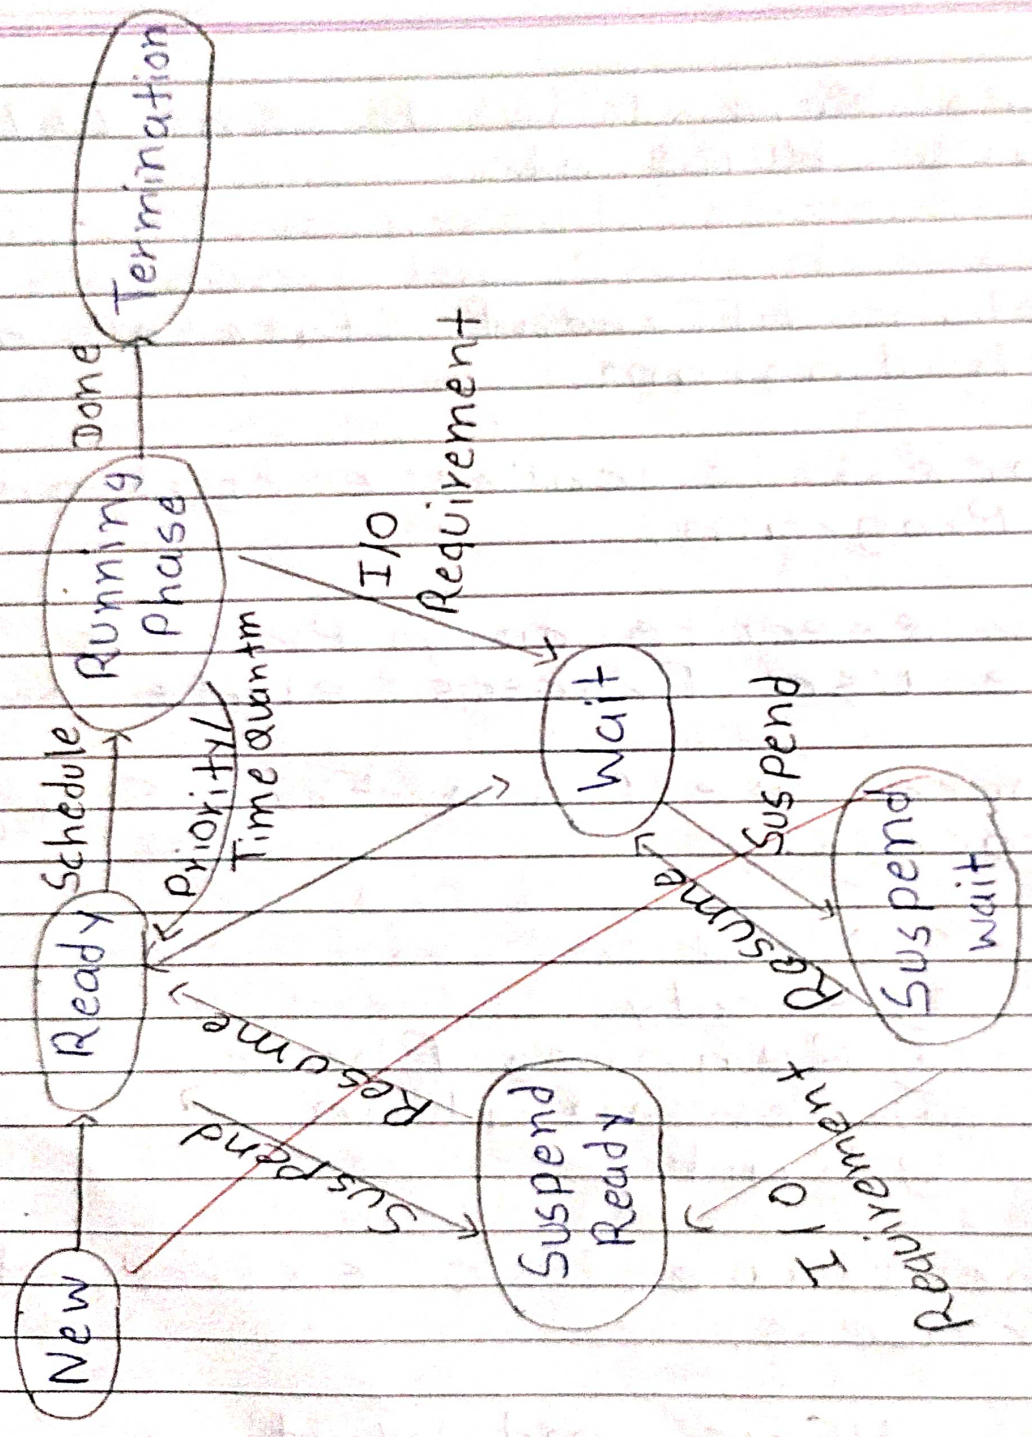 New
Ready
Schedule
Running
Phase
Done
Termination
Priority/
Time Quantm
I/O
Requirement
Suspend
Resume
Wait
Suspend
Resume
Suspend
Ready
Suspend
wait
I/O
Requirement